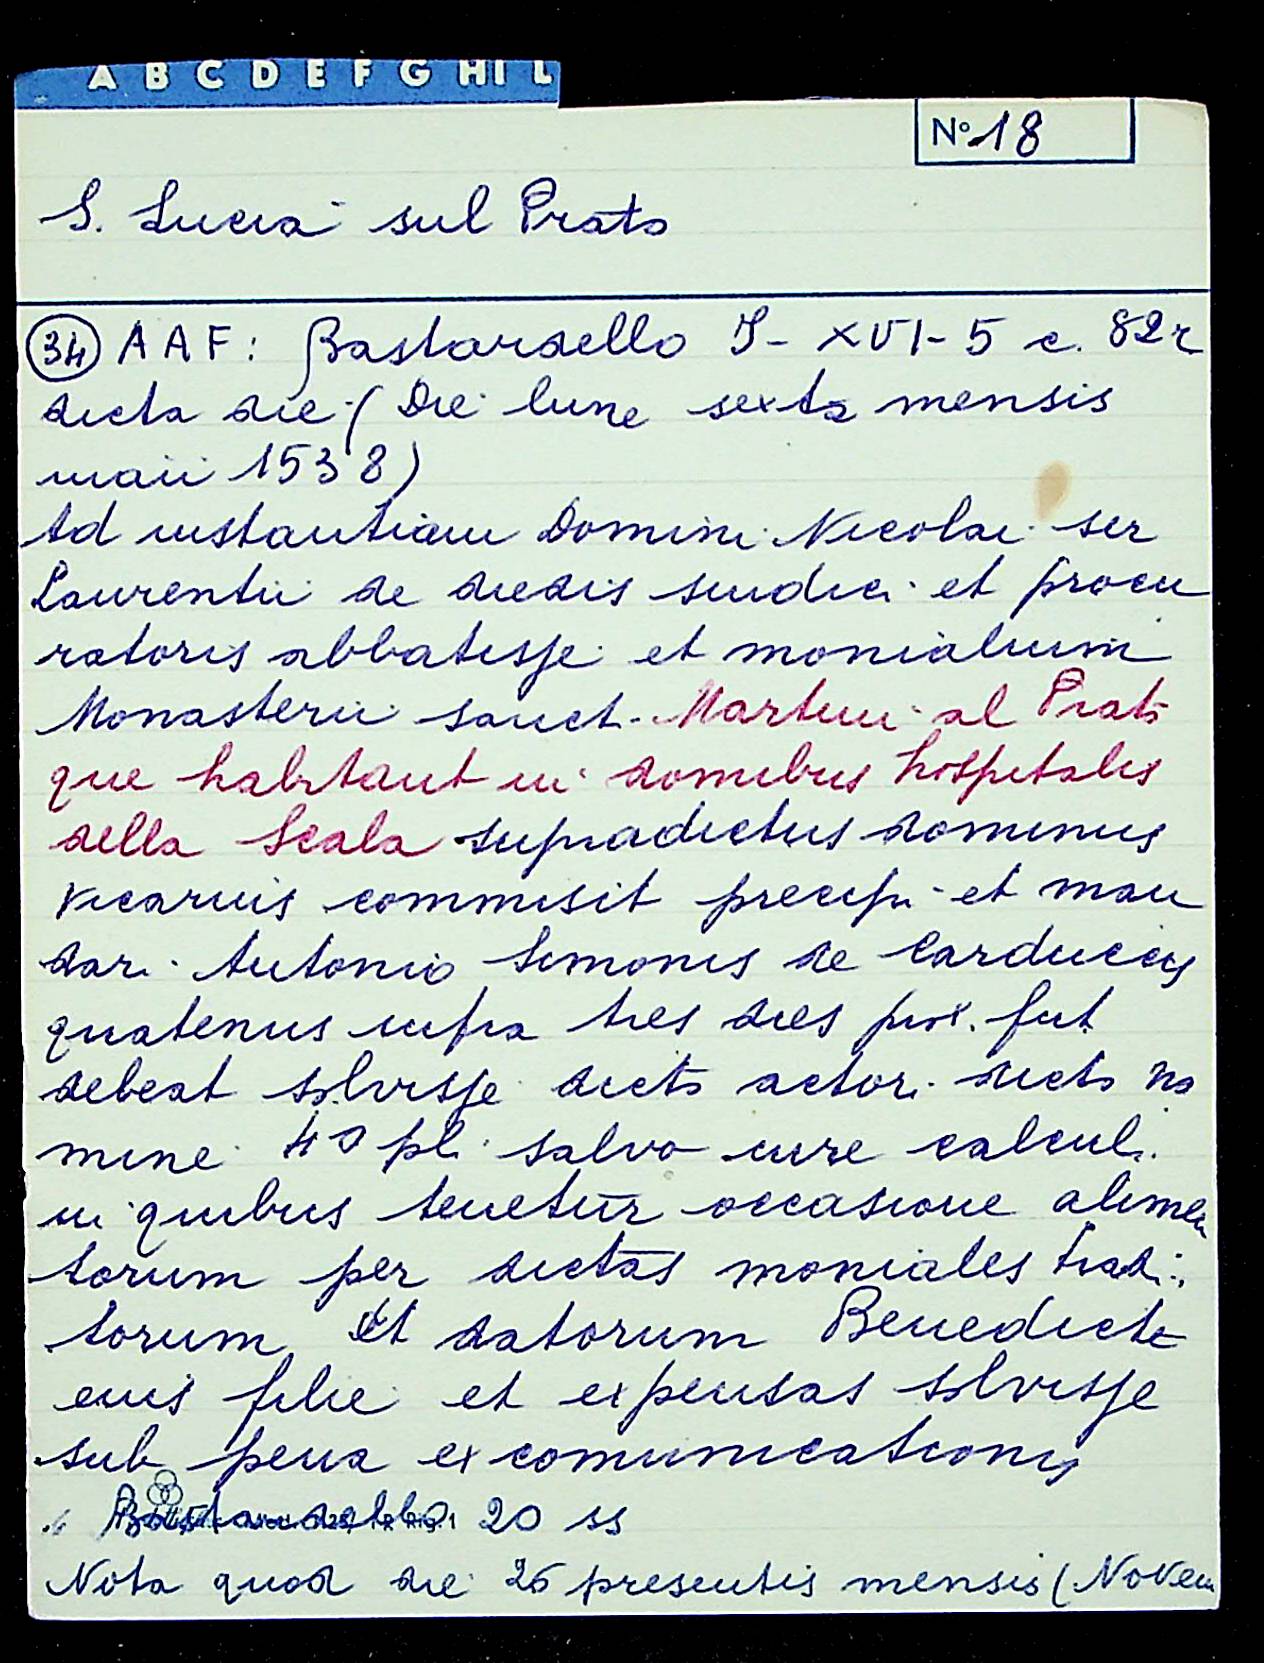 A B C D E F G HI L
N° 18
S. Lucia sul Prato
34 A A F: Bastardello I- XVI- 5 c. 82r
dicta die (Die lune sexta mensis
maii 1538)
Ad instantiam Domini Nicolai ser
Laurentii de diedis sindici et procu
ratoris abbatisse et monialium
Monasterii sanct. Martini al Prato
que habitant in domibus hospitalis
della Scala supradictus dominus
Vicarius commisit precipi et man
dari Antonio Simonis de Carduccis
quatenus infra tres dies prox. fut
debeat solvisse dicto actori dicto no
mine 40 pl. salvo iure calculi
in quibus tenetur occasione alimen
torum per dictas moniales tradi
torum et datorum Benedicte
eius filie et expensas solvisse
sub pena excomunicationis
Bastardello 20 ss
Nota quod die 26 presentis mensis (Novem